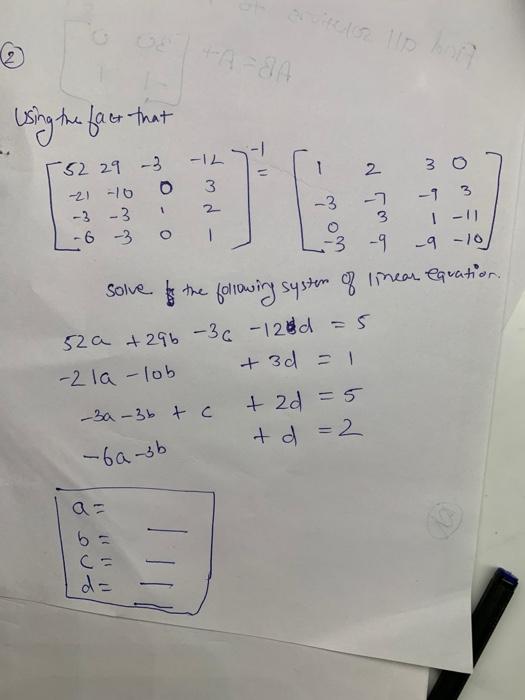 ②
Using the fact that
[52 29 -3 -12
-21 -10 0 3
-3 -3 1 2
-6 -3 0 1]⁻¹ = [1 2 3 0
-3 -7 -9 3
0 3 1 -11
-3 -9 -9 -10]
solve the following system of linear equation.
52a + 29b - 3c - 12d = 5
-21a - 10b + 3d = 1
-3a - 3b + c + 2d = 5
-6a - 3b + d = 2
a = __
b = __
c = __
d = __